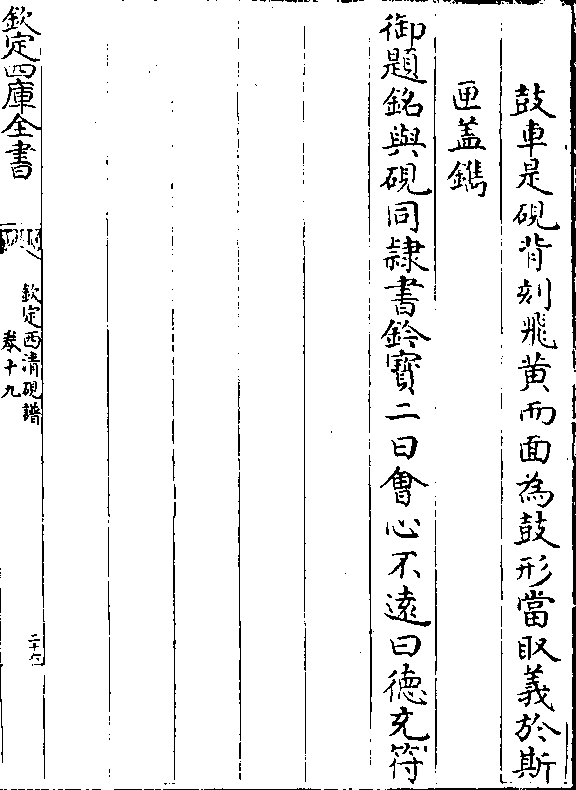 鼓車是硯背刻飛黄而面為鼓形當取義於斯
匣蓋鐫
御題銘與硯同隸書鈐寶二曰㑹心不逺曰德充符
欽定四庫全書
欽定西清硯譜
卷十九
二十六